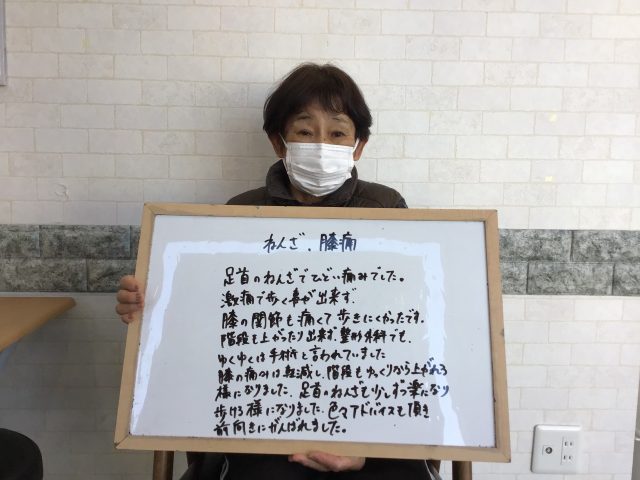 ねんざ、膝痛
足首のねんざでひどい痛みでした。
激痛で歩く事が出来ず、
膝の関節も痛くて歩きにくかったです。
階段も上がったり出来ず、整形外科でも、
ゆくゆくは手術と言われていました
膝の痛みは軽減し、階段もゆっくりから上がれる
様になりました、足首のねんざも少しずつ楽になり
歩ける様になりました、色々アドバイスも頂き
前向きにがんばれました。